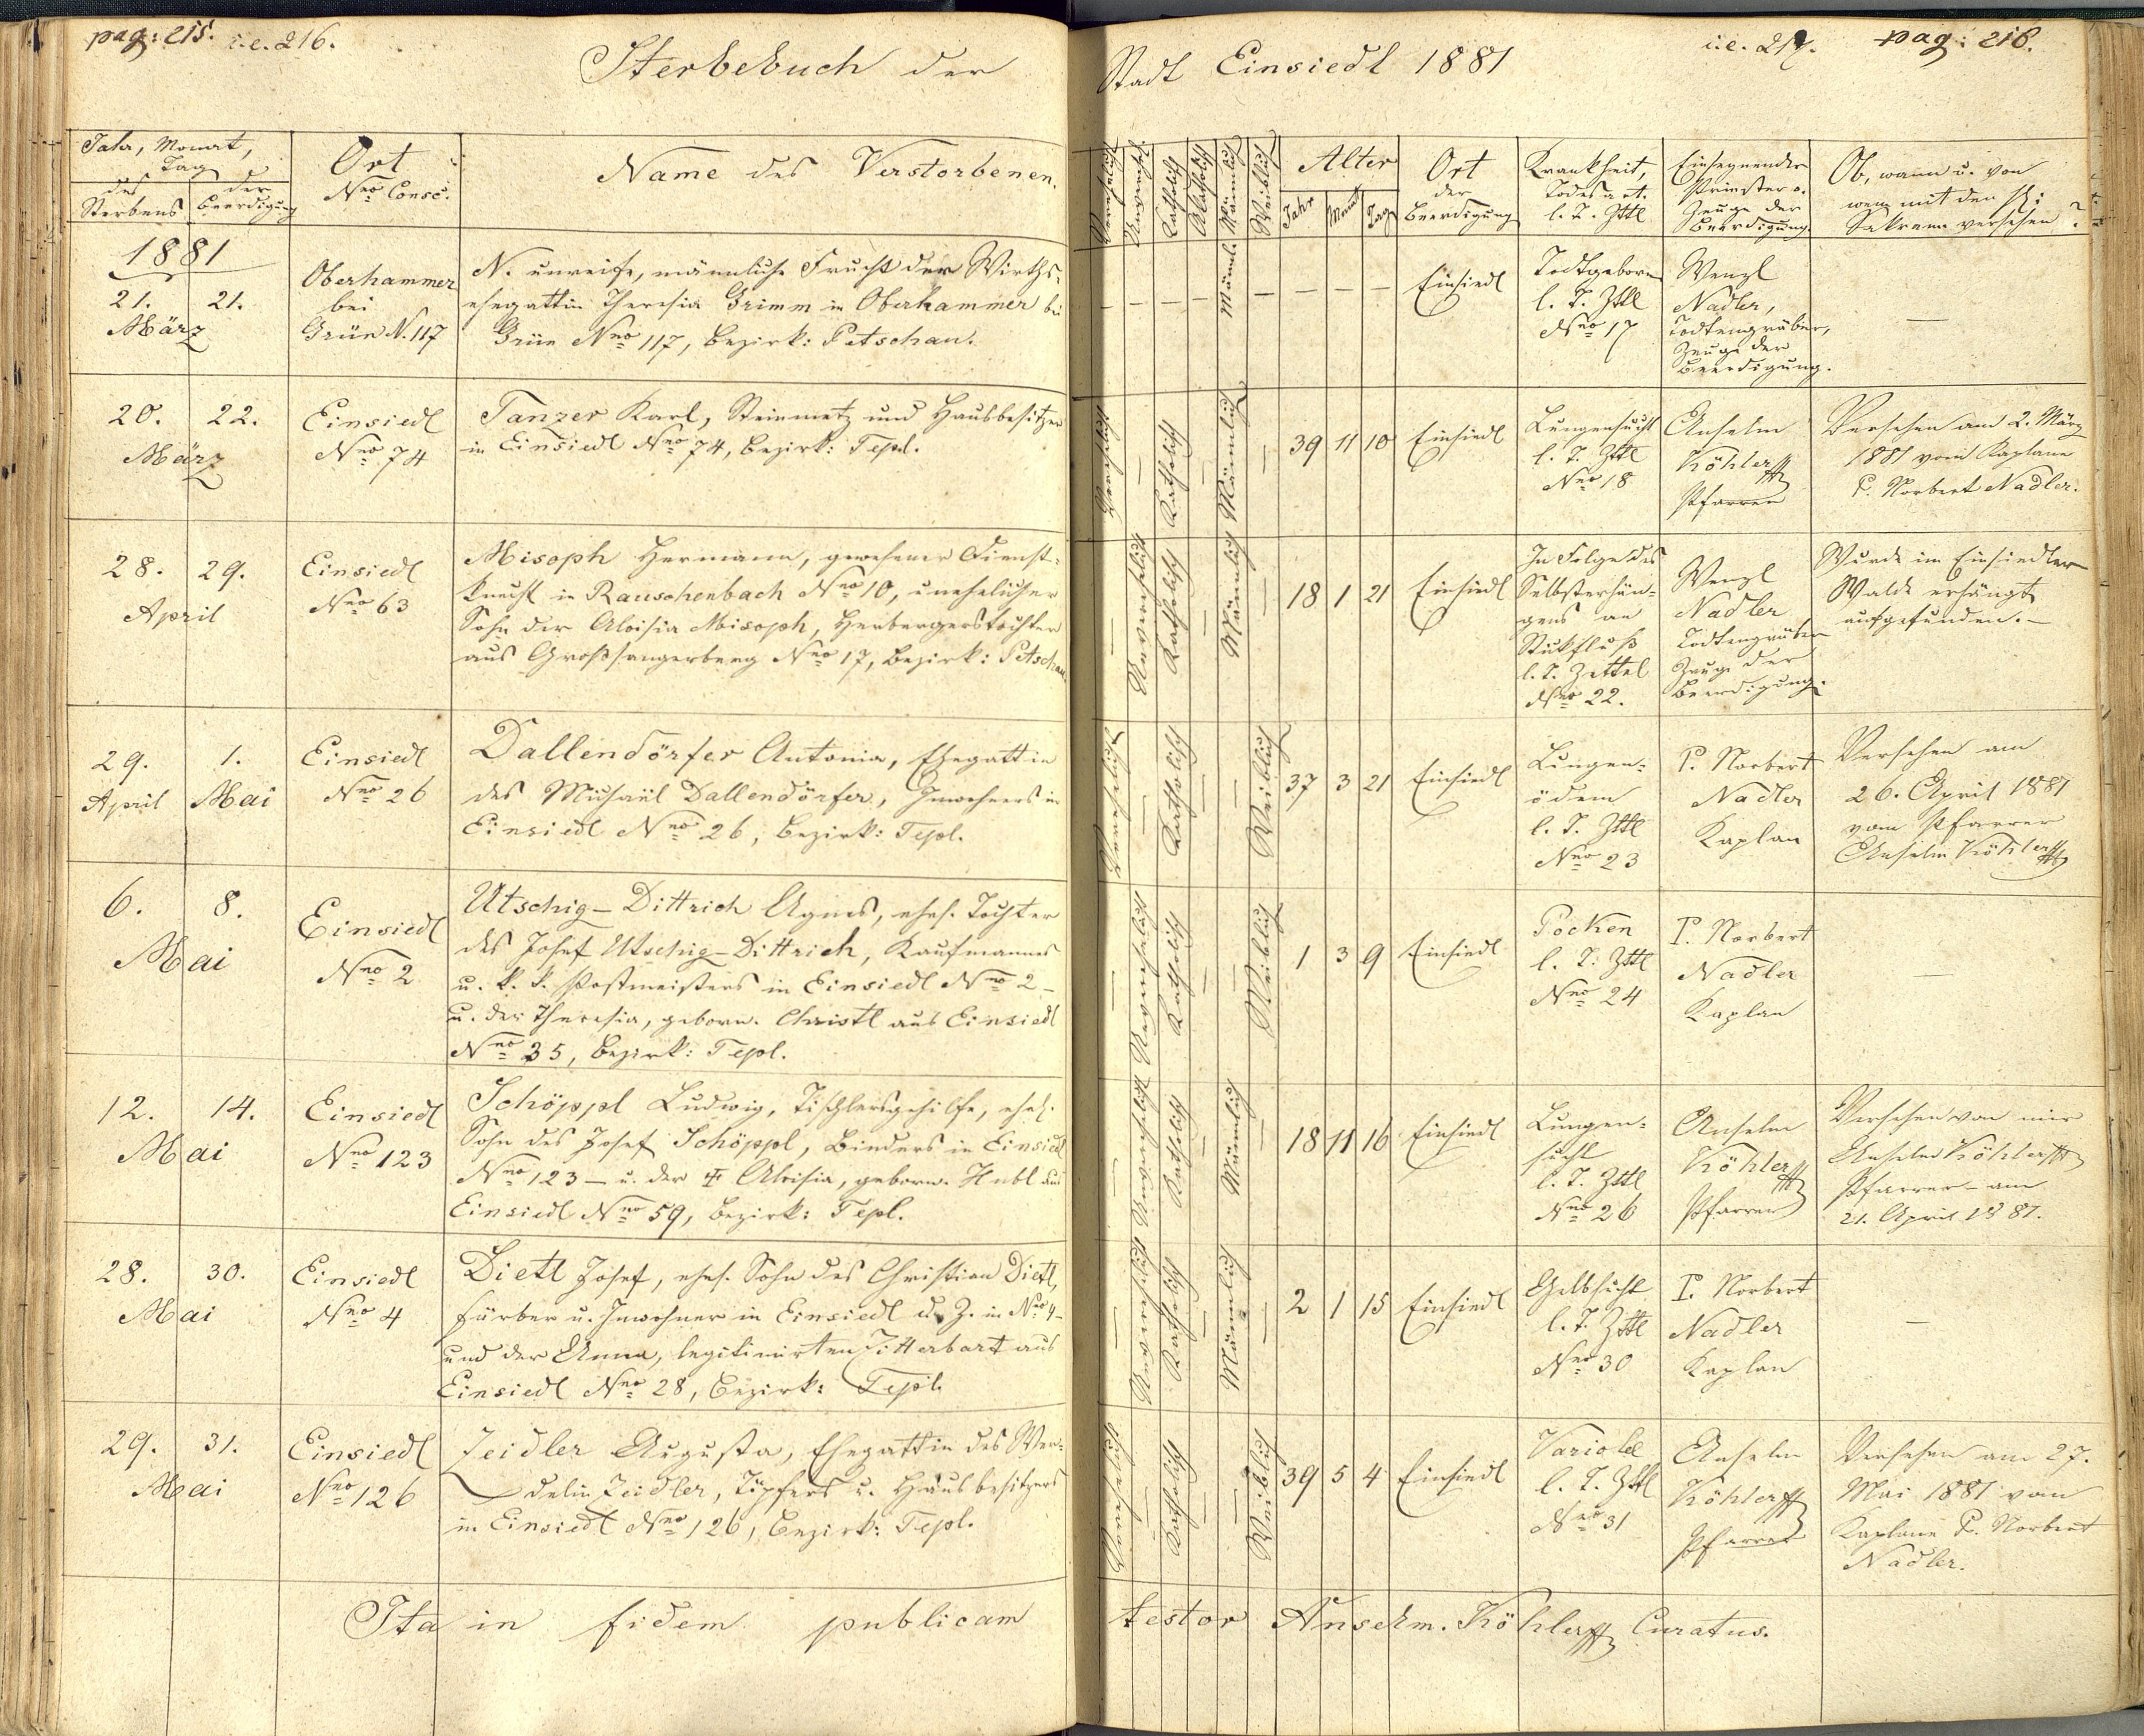 pag: 215. i.e. 216.
Sterbebuch der
Jahr, Monat,
Tag
des Sterbens
der Beerdigung
Ort
Nro Consc.
Name des Verstorbenen.
1881
21. 21.
März
Oberhammer
bei
Grün N. 117
N. unreife, männliche Frucht der Wirths-
ehegattin Theresia Grimm in Oberhammer bei
Grün Nro 117, Bezirk: Petschau.
20. 22.
März
Einsiedl
Nro 74
Tanzer Karl, Steinmetz und Hausbesitzer
in Einsiedl Nro 74, Bezirk: Tepl.
28. 29.
April
Einsiedl
Nro 63
Misoph Hermann, gewesener Dienst-
knecht in Rauschenbach Nro 10, unehelicher
Sohn der Aloisia Misoph, Herbergerstochter
aus Großsangerberg Nro 17, Bezirk: Petschau.
29. 1.
April Mai
Einsiedl
Nro 26
Dallendörfer Antonia, Ehegattin
des Michael Dallendörfer, Inwohners in
Einsiedl Nro 26, Bezirk: Tepl.
6. 8.
Mai
Einsiedl
Nro 2
Utschig-Dittrich Agnes, ehel. Tochter
des Josef Utschig-Dittrich, Kaufmannes
u. k. k. Postmeisters in Einsiedl Nro 2 -
u. der Theresia, geborn. Christl aus Einsiedl
Nro 35, Bezirk: Tepl.
12. 14.
Mai
Einsiedl
Nro 123
Schöppl Ludwig, Tischlersgehilfe, ehel.
Sohn des Josef Schöppl, Binders in Einsiedl
Nro 123 - u. der † Aloisia, geborn. Hubl aus
Einsiedl Nro 59, Bezirk: Tepl.
28. 30.
Mai
Einsiedl
Nro 4
Dietl Josef, ehel. Sohn des Christian Dietl,
Färber u. Inwohner in Einsiedl d. Z. in Nro 4 -
und der Anna, legitimirten Zitterbart aus
Einsiedl Nro 28, Bezirk: Tepl.
29. 31.
Mai
Einsiedl
Nro 126
Zeidler Augusta, Ehegattin des Wen-
delin Zeidler, Töpfers u. Hausbesitzers
in Einsiedl Nro 126, Bezirk: Tepl.
Ita in fidem publicam
Stadt Einsiedl 1881
i.e. 217. pag: 216.
Verehelicht
Unverehel.
Katholisch
Akatholisch
Männlich
Weiblich
Alter
Jahr Monat Tag
Ort
der
Beerdigung
Krankheit,
Todesart.
l. T. Zttl
Einsegnender
Priester o.
Zeuge der
Beerdigung.
Ob, wann u. von
wem mit den hl:
Sakram versehen?
— — — — Männl. — — — —
Einsiedl
Todtgeboren
l. T. Zttl
Nro 17
Wenzl
Nadler,
Todtengräber,
Zeuge der
Beerdigung.
—
Verehelicht — Katholisch — Männlich —
39 11 10 Einsiedl
Lungensucht
l. T. Zttl
Nro 18
Anselm
Köhler
Pfarrer
Versehen am 2. März
1881 vom Kaplane
P. Norbert Nadler.
— Unverehelicht Katholisch — Männlich —
18 1 21 Einsiedl
In Folge des
Selbsterhän-
gens an
Stickfluß
l. T. Zettel
Nro 22.
Wenzl
Nadler
Todtengräber
Zeuge der
Beerdigung.
Wurde im Einsiedler
Walde erhängt
aufgefunden. —
Verehelicht — Katholisch — — Weiblich
37 3 21 Einsiedl
Lungen-
ödem
l. T. Zttl
Nro 23
P. Norbert
Nadler
Kaplan
Versehen am
26. April 1881
vom Pfarrer
Anselm Köhler
— Unverehelicht Katholisch — — Weiblich
1 3 9 Einsiedl
Pocken
l. T. Zttl
Nro 24
P. Norbert
Nadler
Kaplan
—
— Unverehelicht Katholisch — Männlich —
18 11 16 Einsiedl
Lungen-
sucht
l. T. Zttl
Nro 26
Anselm
Köhler
Pfarrer
Versehen von mir
Anselm Köhler
Pfarrer - am
21. April 1881.
— Unverehelicht Katholisch — Männlich —
2 1 15 Einsiedl
Gelbsucht
l. T. Zttl
Nro 30
P. Norbert
Nadler
Kaplan
—
Verehelicht — Katholisch — — Weiblich
39 5 4 Einsiedl
Variolae
l. T. Zttl
Nro 31
Anselm
Köhler
Pfarrer
Versehen am 27.
Mai 1881 vom
Kaplane P. Norbert
Nadler.
testor Anselm. Köhler Curatus.